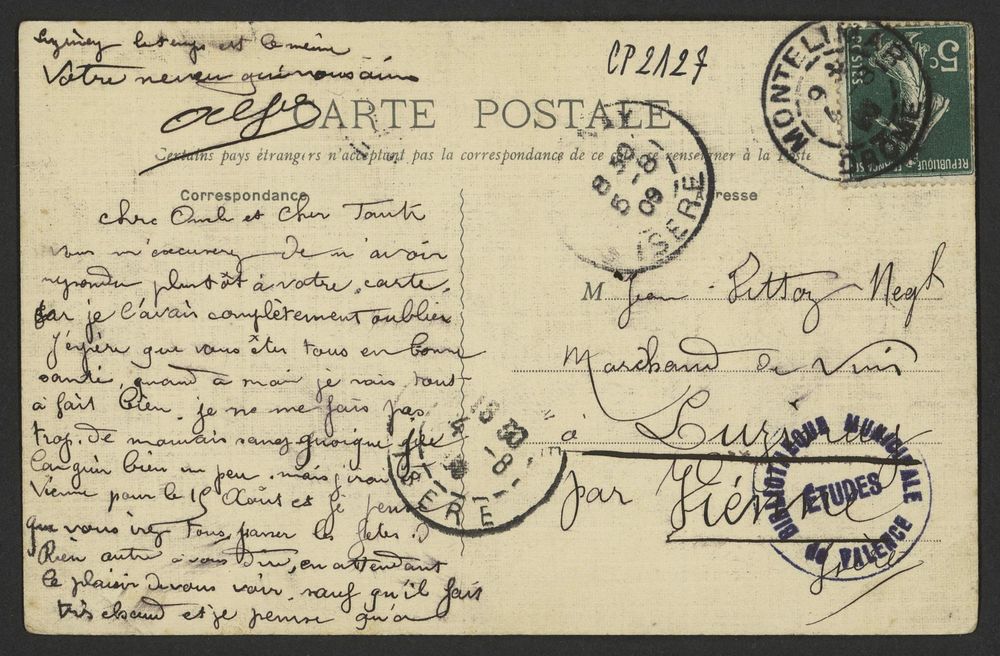 Luzinay le temps est le même
Votre neveu qui vous aime
CP2127
CARTE POSTALE
Certains pays étrangers n'acceptant pas la correspondance de ce se renseigner à la Poste
Correspondance
Adresse
MONTELIMAR
DROME
5c
REPUBLIQUE
ISERE
8 30
5 -8
09
chère Oncle et Cher Tante
vous m'excuserez de n'avoir
repondu plutôt à votre carte.
car je l'avais complètement oublier
J'éspère que vous êtes tous en bonne
santé, quand à moi je vais tout
à fait bien. je ne me fais pas
trop de mauvais sang quoique que
languir bien un peu. mais j'irai à
Vienne pour le 15 Août et je pense
que vous irez tous passer les fêtes.
Rien autre à vous dire, en attendant
le plaisir de vous voir, sauf qu'il fait
très chaud et je pense qu'à
M Jean Pittoz Negt
Marchand de Vins
à Luzinay
par Vienne
Isère
18 30
-8
ISERE
BIBLIOTHEQUE MUNICIPALE
ETUDES
DE VALENCE